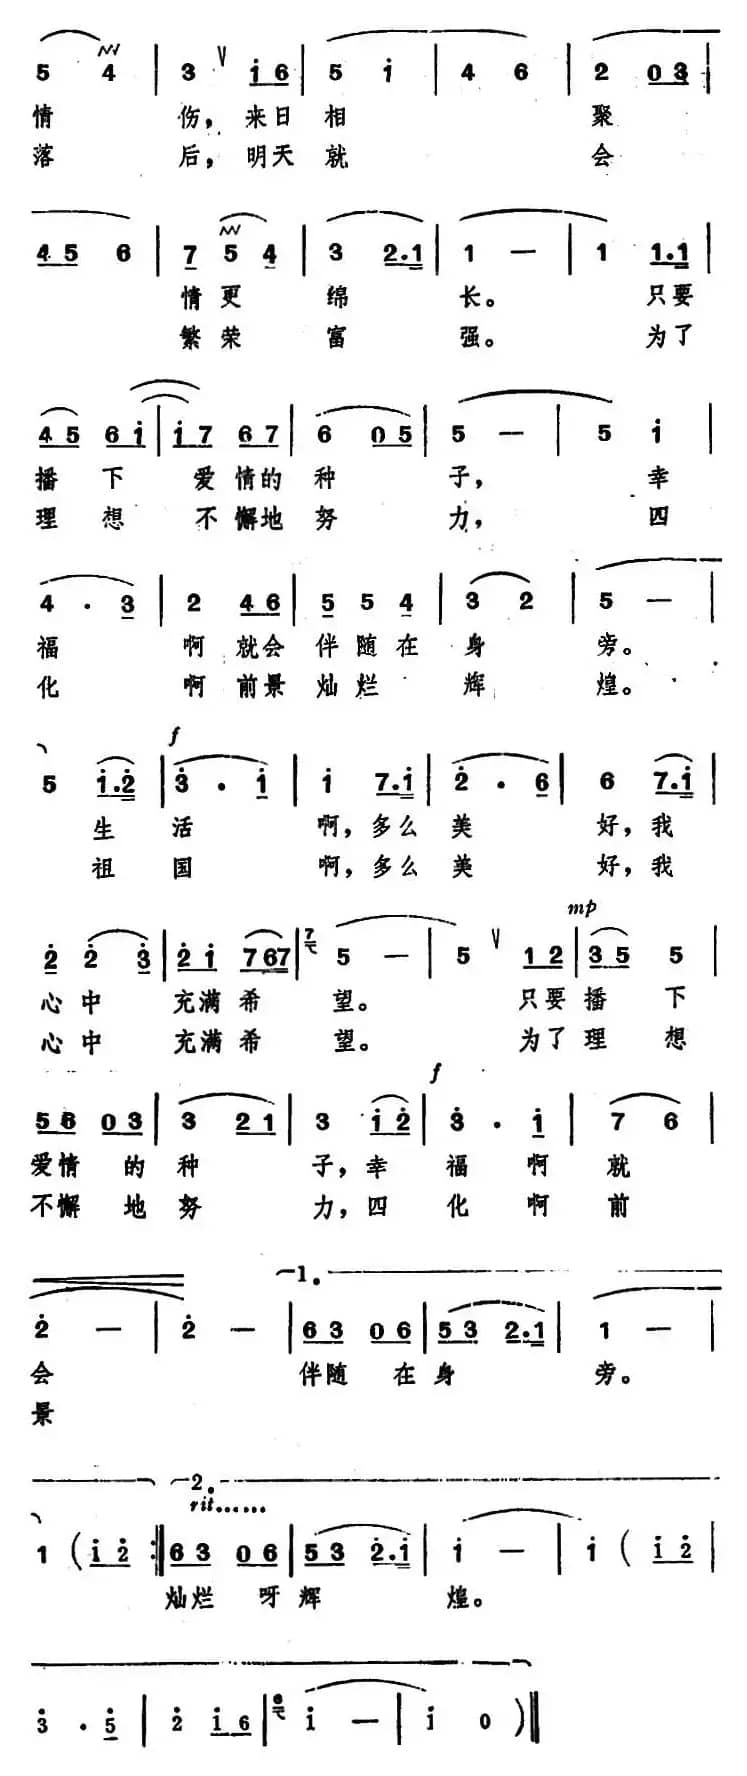 5 4 | 3 V i 6 | 5 i | 4 6 | 2 0 3 |
情 伤，来日 相 聚
落 后，明天 就 会
4 5 6 | 7 5 4 | 3 2.1 | 1 — | 1 1.1 |
情更 绵 长。 只要
繁荣 富 强。 为了
4 5 6 i | i 7 6 7 | 6 0 5 | 5 — | 5 i |
播 下 爱 情的 种 子， 幸
理 想 不 懈地 努 力， 四
4 . 3 | 2 4 6 | 5 5 4 | 3 2 | 5 — |
福 啊 就会 伴 随 在 身 旁。
化 啊 前景 灿 烂 辉 煌。
f
5 i.2 | 3 . i | i 7.i | 2 . 6 | 6 7.i |
生 活 啊，多么 美 好，我
祖 国 啊，多么 美 好，我
mp
2 2 3 | 2 i 7 6 7 | 7 5 — | 5 V 1 2 | 3 5 5 |
心 中 充满 希 望。 只要 播 下
心 中 充满 希 望。 为了 理 想
f
5 6 0 3 | 3 2 1 | 3 i 2 | 3 . i | 7 6 |
爱情 的 种 子，幸 福 啊 就
不懈 地 努 力，四 化 啊 前
1.
2 — | 2 — | 6 3 0 6 | 5 3 2.1 | 1 — |
会 伴随 在 身 旁。
景
2.
rit......
1 ( i 2 :‖ 6 3 0 6 | 5 3 2.i | i — | i ( i 2 |
灿烂 呀 辉 煌。
3 . 5 | 2 i 6 | 6 i — | i 0 )‖